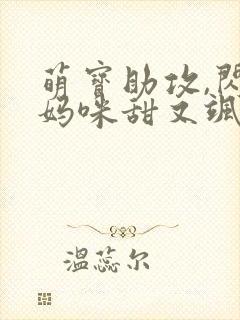 萌宝助攻,闪
妈咪甜又飒
温蕊尔